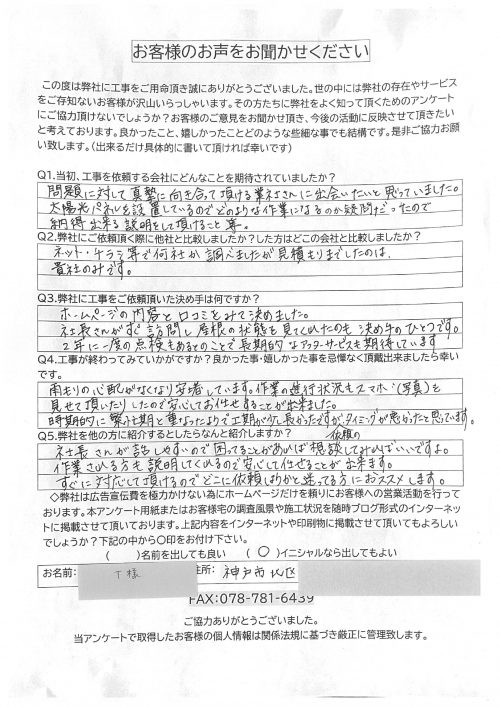 お客様のお声をお聞かせください
この度は弊社に工事をご用命頂き誠にありがとうございました。世の中には弊社の存在やサービス
をご存知ないお客様が沢山いらっしゃいます。その方たちに弊社をよく知って頂くためのアンケート
にご協力頂けないでしょうか？お客様のご意見をお聞かせ頂き、今後の活動に反映させて頂きたい
と考えております。良かったこと、嬉しかったことどのような些細な事でも結構です。是非ご協力お願
い致します。（出来るだけ具体的に書いて頂ければ幸いです）
Q1.当初、工事を依頼する会社にどんなことを期待されていましたか？
問題に対して真摯に向き合って頂ける業社さんに出会いたいと思っていました。
太陽光パネルを設置しているのでどのような作業になるのか疑問だったので
納得出来る説明をして頂けること等。
Q2.弊社にご依頼頂く際に他社と比較しましたか？した方はどこの会社と比較しましたか？
ネット・チラシ等で何社か調べましたが見積もりまでしたのは、
貴社のみです。
Q3.弊社に工事をご依頼頂いた決め手は何ですか？
ホームページの内容と口コミをみて決めました。
社長さんがすぐ訪問し屋根の状態を見てくれたのも決め手のひとつです。
2年に一度の点検もあるとのことで長期的なアフターサービスも期待しています
Q4.工事が終わってみていかがですか？良かった事・嬉しかった事を忌憚なく頂戴出来ましたら幸い
です。
雨もりの心配がなくなり安堵しています。作業の進行状況もスマホ（写真）を
見せて頂いたりしたので安心してお任せすることが出来ました。
時期的に繁忙期と重なったようで工期が少し長かったですがタイミングが悪かったと思っています。
Q5.弊社を他の方に紹介するとしたらなんと紹介しますか？
社長さんが話しやすいので困ってることがあれば相談してみればいいですよ。
作業される方も説明してくれるので安心して任せることが出来ます。
すぐに対応して頂けるのでどこに依頼しようかと迷ってる方におススメします。
◇弊社は広告宣伝費を極力かけない為にホームページだけを頼りにお客様への営業活動を行って
おります。本アンケート用紙またはお客様宅の調査風景や施工状況を随時ブログ形式のインターネッ
トに掲載させて頂いております。上記内容をインターネットや印刷物に掲載させて頂いてもよろしい
でしょうか？下記の中から〇印をお付け下さい。
（　　）名前を出しても良い　（ 〇 ）イニシャルなら出してもよい
お名前： T様 住所： 神戸市北区
FAX：078-781-6439
ご協力ありがとうございました。
当アンケートで取得したお客様の個人情報は関係法規に基づき厳正に管理致します。